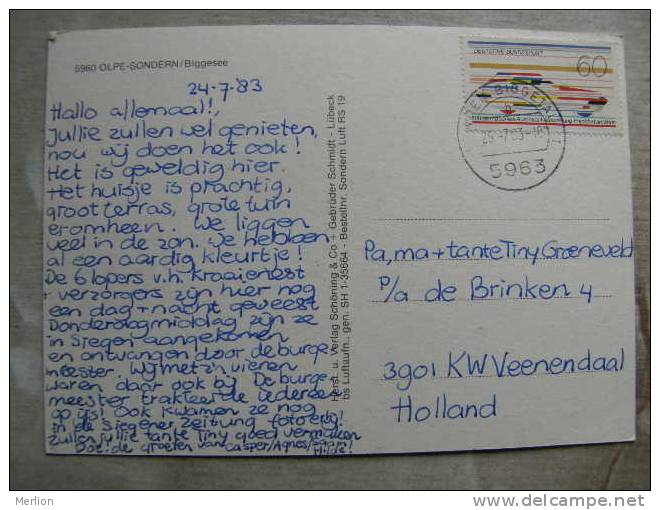 5960 OLPE-SONDERN/Biggesee
24-7-'83
Hallo allemaal!,
Jullie zullen wel genieten,
nou wij doen het ook!
Het is geweldig hier.
Het huisje is prachtig,
groot terras, grote tuin
eromheen. We liggen
veel in de zon. We hebben
al een aardig kleurtje!
De 6 lopers v.h. Kraaienest
+ verzorgers zijn hier nog
een dag + nacht geweest
Donderdagmiddag zijn ze
in Siegen aangekomen
en ontvangen door de burge-
meester. Wij met z'n vieren
waren daar ook bij. De burge-
meester trakteerde iederee
op ijs! Ook kwamen ze nog
in de Siegener Zeitung foto erbij!
Zullen jullie tante Tiny goed vermaken
Doei! de groeten van Casper/Agnes/
Hilde!
Herst. u. Verlag Schöning & Co + Gebrüder Schmidt - Lübeck
bs Luftaufn., gen. SH 1-35664 - Bestellnr. Sondern Luft RS 19
DEUTSCHE BUNDESPOST
60
5963
Pa, ma + tante Tiny Groeneveld
p/a de Brinken 4
3901 KW Veenendaal
Holland
Merlion
www.delcampe.net